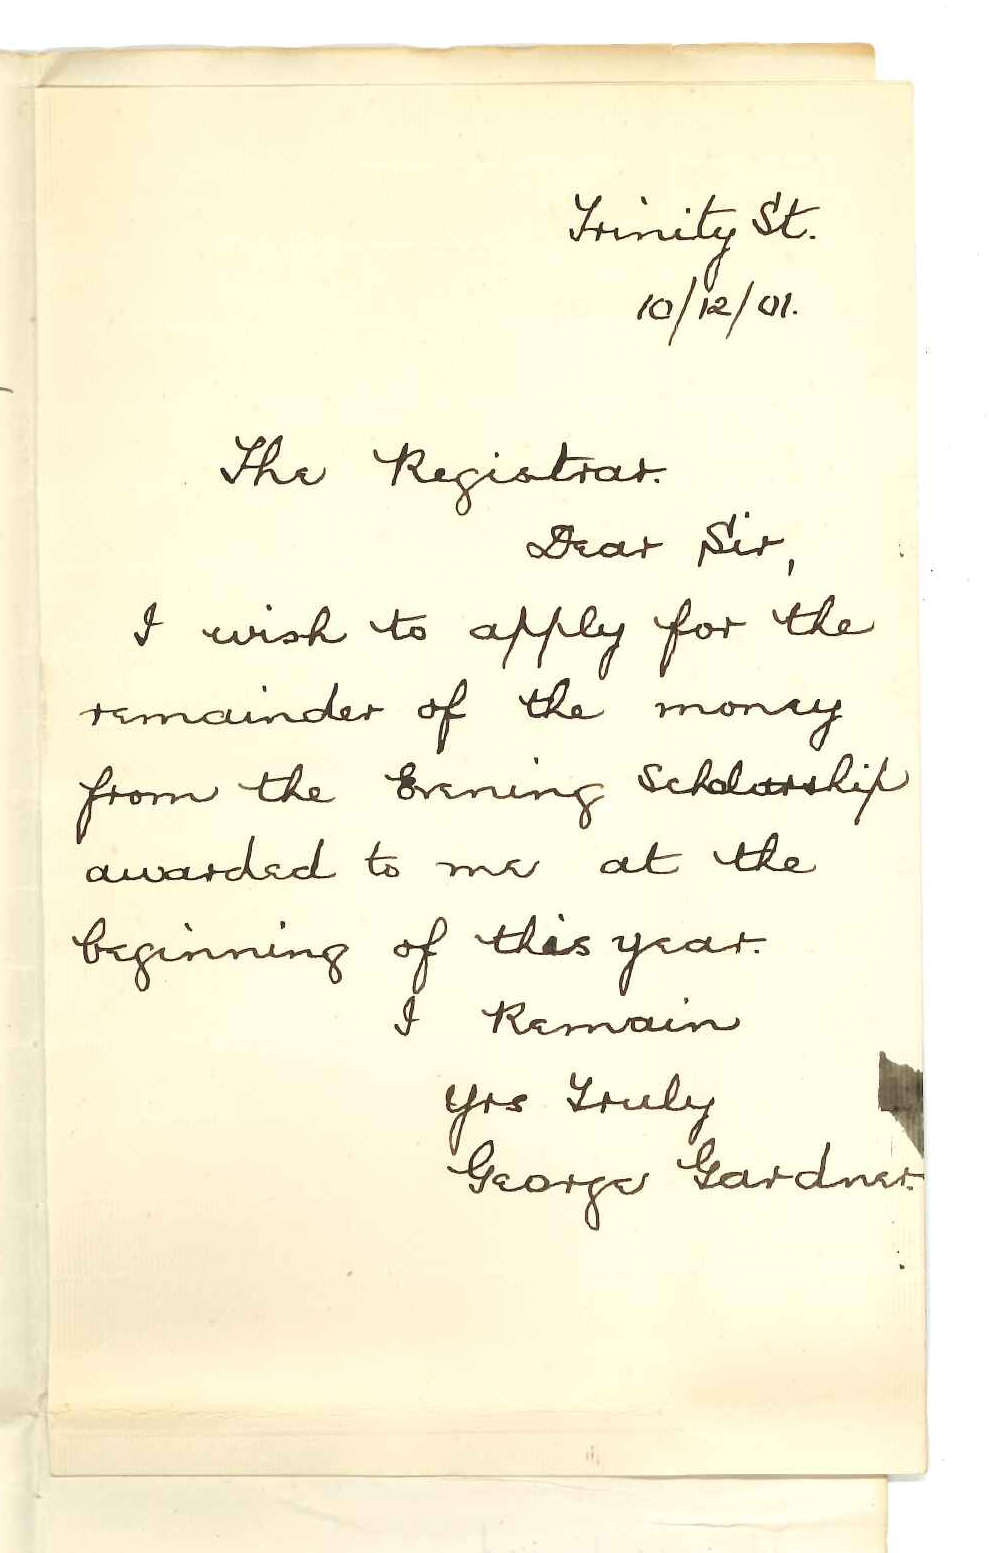 Trinity St.
10/12/01.
The Registrar.
Dear Sir,
I wish to apply for the
remainder of the money
from the Evening Scholarship
awarded to me at the
beginning of this year.
I Remain
Yrs Truly
George Gardner.